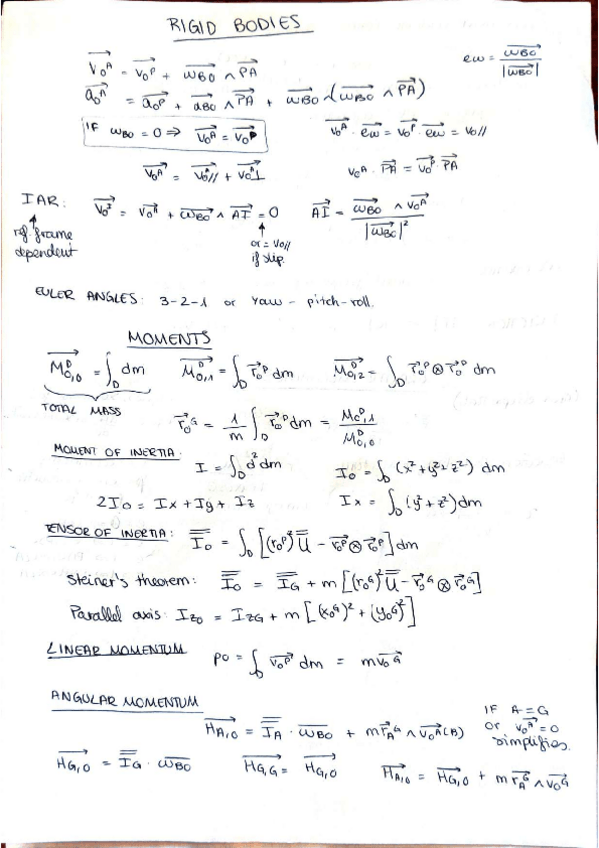 RIGID BODIES
v₀ᴬ = v₀ᴾ + ω_BO ∧ PA
eω = ω_BO / |ω_BO|
a₀ᴬ = a₀ᴾ + α_BO ∧ PA + ω_BO ∧ (ω_BO ∧ PA)
IF ω_BO = 0 ⇒ v₀ᴬ = v₀ᴾ
v₀ᴬ · eω = v₀ᴾ · eω = v₀//
v₀ᴬ = v₀// + v₀⊥
v₀ᴬ · PA = v₀ᴾ · PA
IAR: v₀ᴵ = v₀ᴬ + ω_BO ∧ AI = 0
AI = ω_BO ∧ v₀ᴬ / |ω_BO|²
ref. frame
dependent
or = v₀//
if slip.
EULER ANGLES: 3-2-1 or yaw - pitch - roll.
MOMENTS
M_O,0ᴰ = ∫_D dm
M_O,1ᴰ = ∫_D r₀ᴾ dm
M_O,2ᴰ = ∫_D r₀ᴾ ⊗ r₀ᴾ dm
TOTAL MASS
r₀ᴳ = 1/m ∫_D r₀ᴾ dm = M_O,1ᴰ / M_O,0ᴰ
MOMENT OF INERTIA:
I = ∫_D d² dm
I₀ = ∫_D (x² + y² + z²) dm
2I₀ = Ix + Iy + Iz
Ix = ∫_D (y² + z²) dm
TENSOR OF INERTIA: I₀ = ∫_D [(r₀ᴾ)² U - r₀ᴾ ⊗ r₀ᴾ] dm
Steiner's theorem: I₀ = I_G + m [(r₀ᴳ)² U - r₀ᴳ ⊗ r₀ᴳ]
Parallel axis: I_z₀ = I_zG + m [(x₀ᴳ)² + (y₀ᴳ)²]
LINEAR MOMENTUM
p₀ = ∫_D v₀ᴾ dm = m v₀ᴳ
ANGULAR MOMENTUM
H_A,O = I_A · ω_BO + m r_Aᴳ ∧ v₀ᴬ(A)
IF A = G
or v₀ᴬ = 0
simplifies.
H_G,O = I_G · ω_BO
H_G,G = H_G,O
H_A,O = H_G,O + m r_Aᴳ ∧ v₀ᴳ